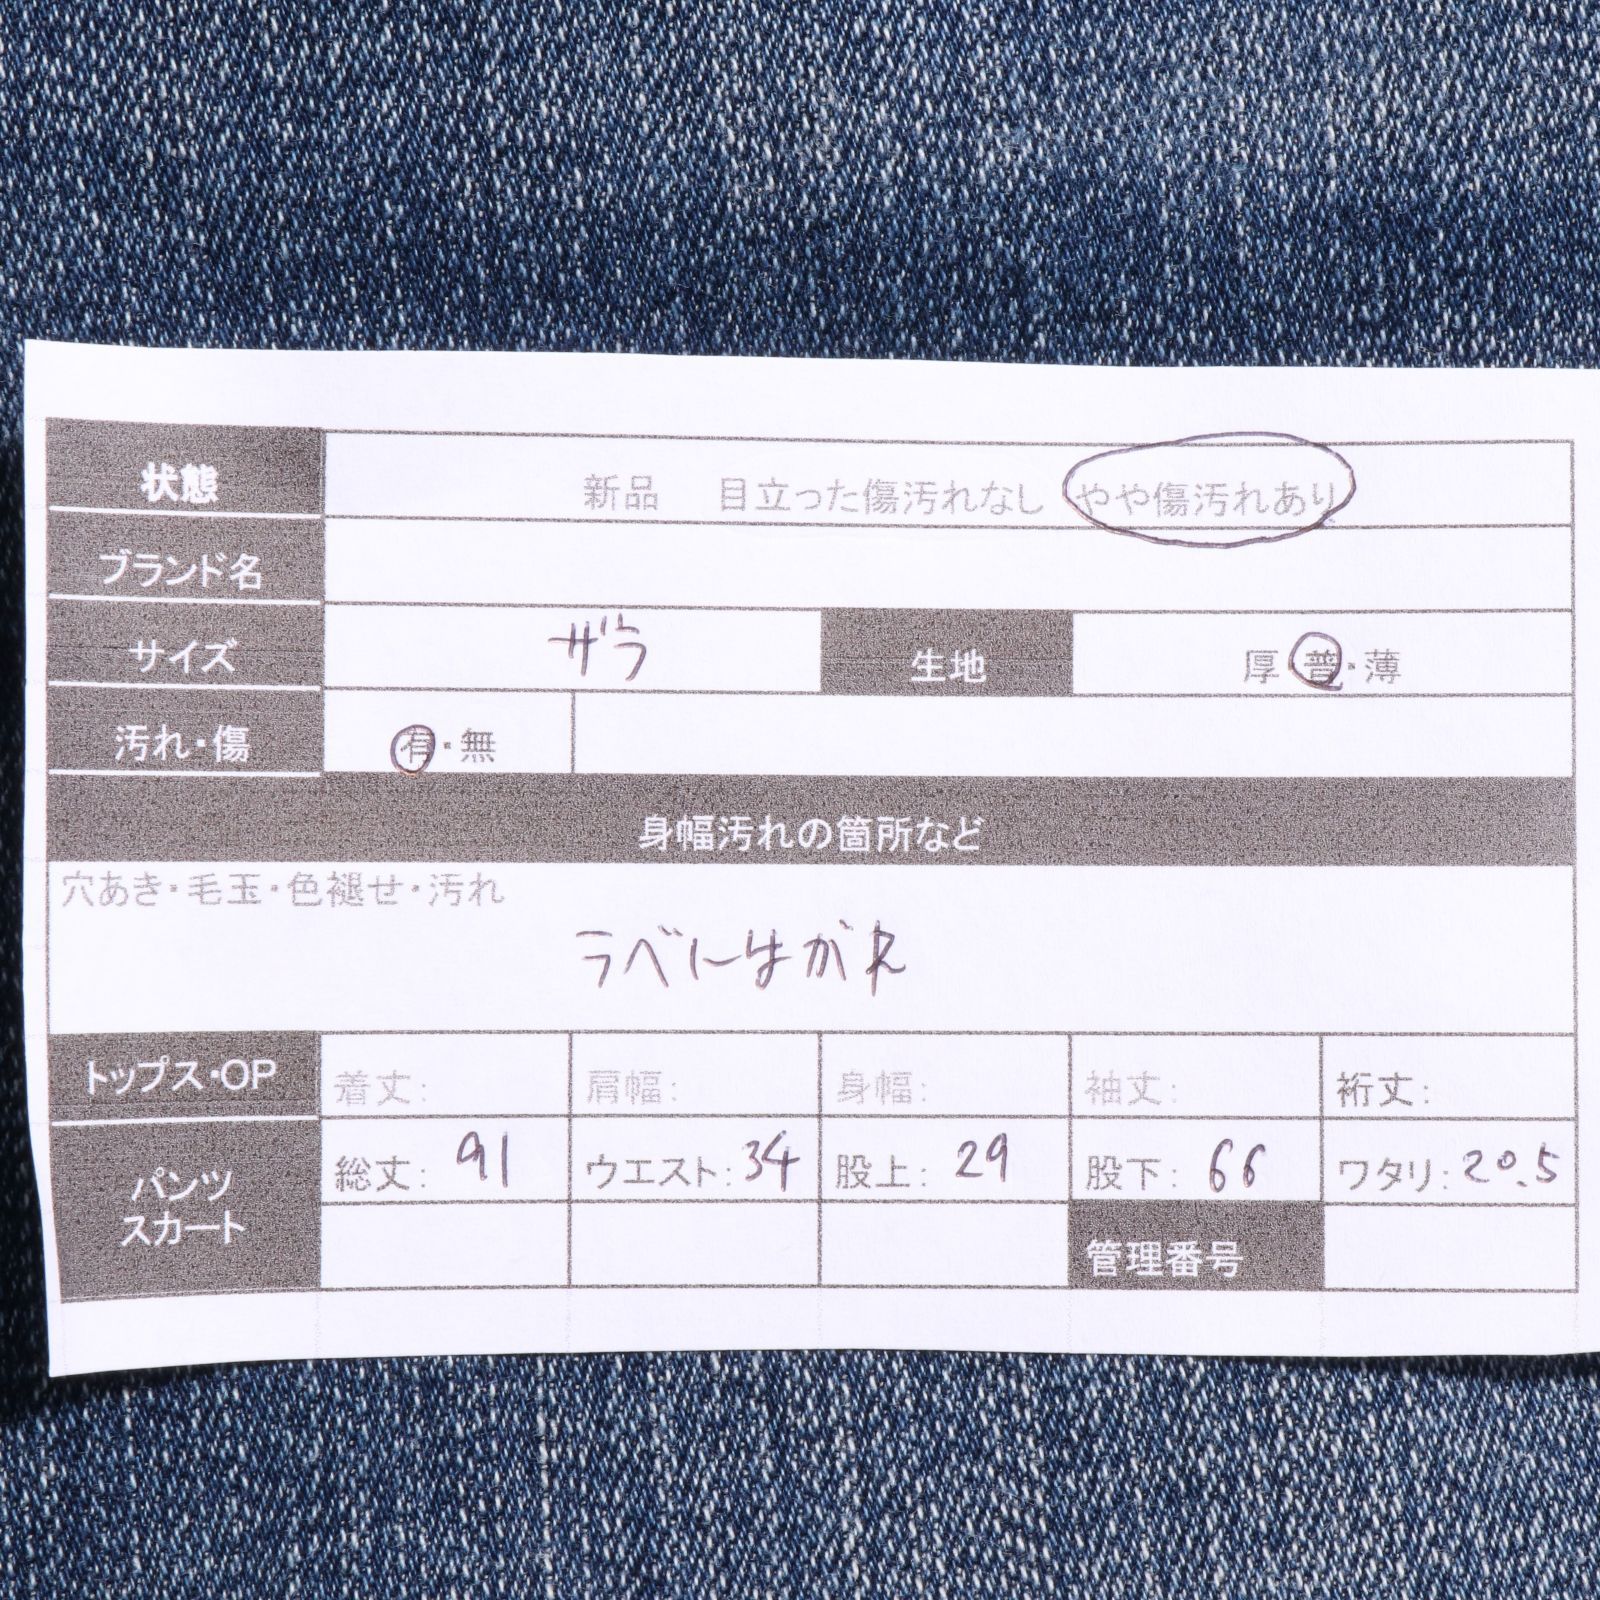 状態 新品 目立った傷汚れなし やや傷汚れあり
ブランド名
サイズ ザラ 生地 厚・普・薄
汚れ・傷 有・無
身幅汚れの箇所など
穴あき・毛玉・色褪せ・汚れ
ラベルはがれ
トップス・OP 着丈: 肩幅: 身幅: 袖丈: 裄丈:
パンツ
スカート
総丈: 91 ウエスト: 34 股上: 29 股下: 66 ワタリ: 20.5
管理番号